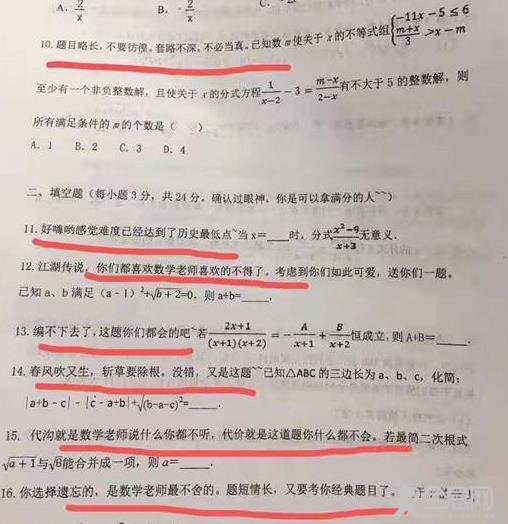 A. 2/x B. -2/x C.
10. 题目略长,不要彷徨。套路不深,不必当真。已知数 m 使关于 x 的不等式组{-11x-5≤6
(m+x)/3 >x-m
至少有一个非负整数解,且使关于 x 的分式方程 1/(x-2) -3= (m-x)/(2-x) 有不大于 5 的整数解,则
所有满足条件的 m 的个数是( )
A. 1 B. 2 C. 3 D. 4
二、填空题(每小题 3 分,共 24 分。确认过眼神,你是可以拿满分的人~~)
11. 好嗨哟感觉难度已经达到了历史最低点~当 x=____时,分式 (x²-9)/(x+3) 无意义.
12. 江湖传说,你们都喜欢数学老师喜欢的不得了。考虑到你们如此可爱,送你们一题。
已知 a、b 满足(a-1)²+√(b+2)=0,则 a+b=____.
13. 编不下去了,这题你们都会的吧~若 (2x+1)/((x+1)(x+2)) = -A/(x+1) + B/(x+2) 恒成立,则 A+B=____.
14. 春风吹又生,斩草要除根。没错,又是这题~~已知△ABC 的三边长为 a、b、c,化简:
|a+b-c|-|c-a+b|+√(b-a-c)²=____.
15. 代沟就是数学老师说什么你都不听,代价就是这道题你什么都不会。若最简二次根式
√(a+1)与√8能合并成一项,则 a=____.
16. 你选择遗忘的,是数学老师最不舍的。题短情长,又要考你经典题目了。